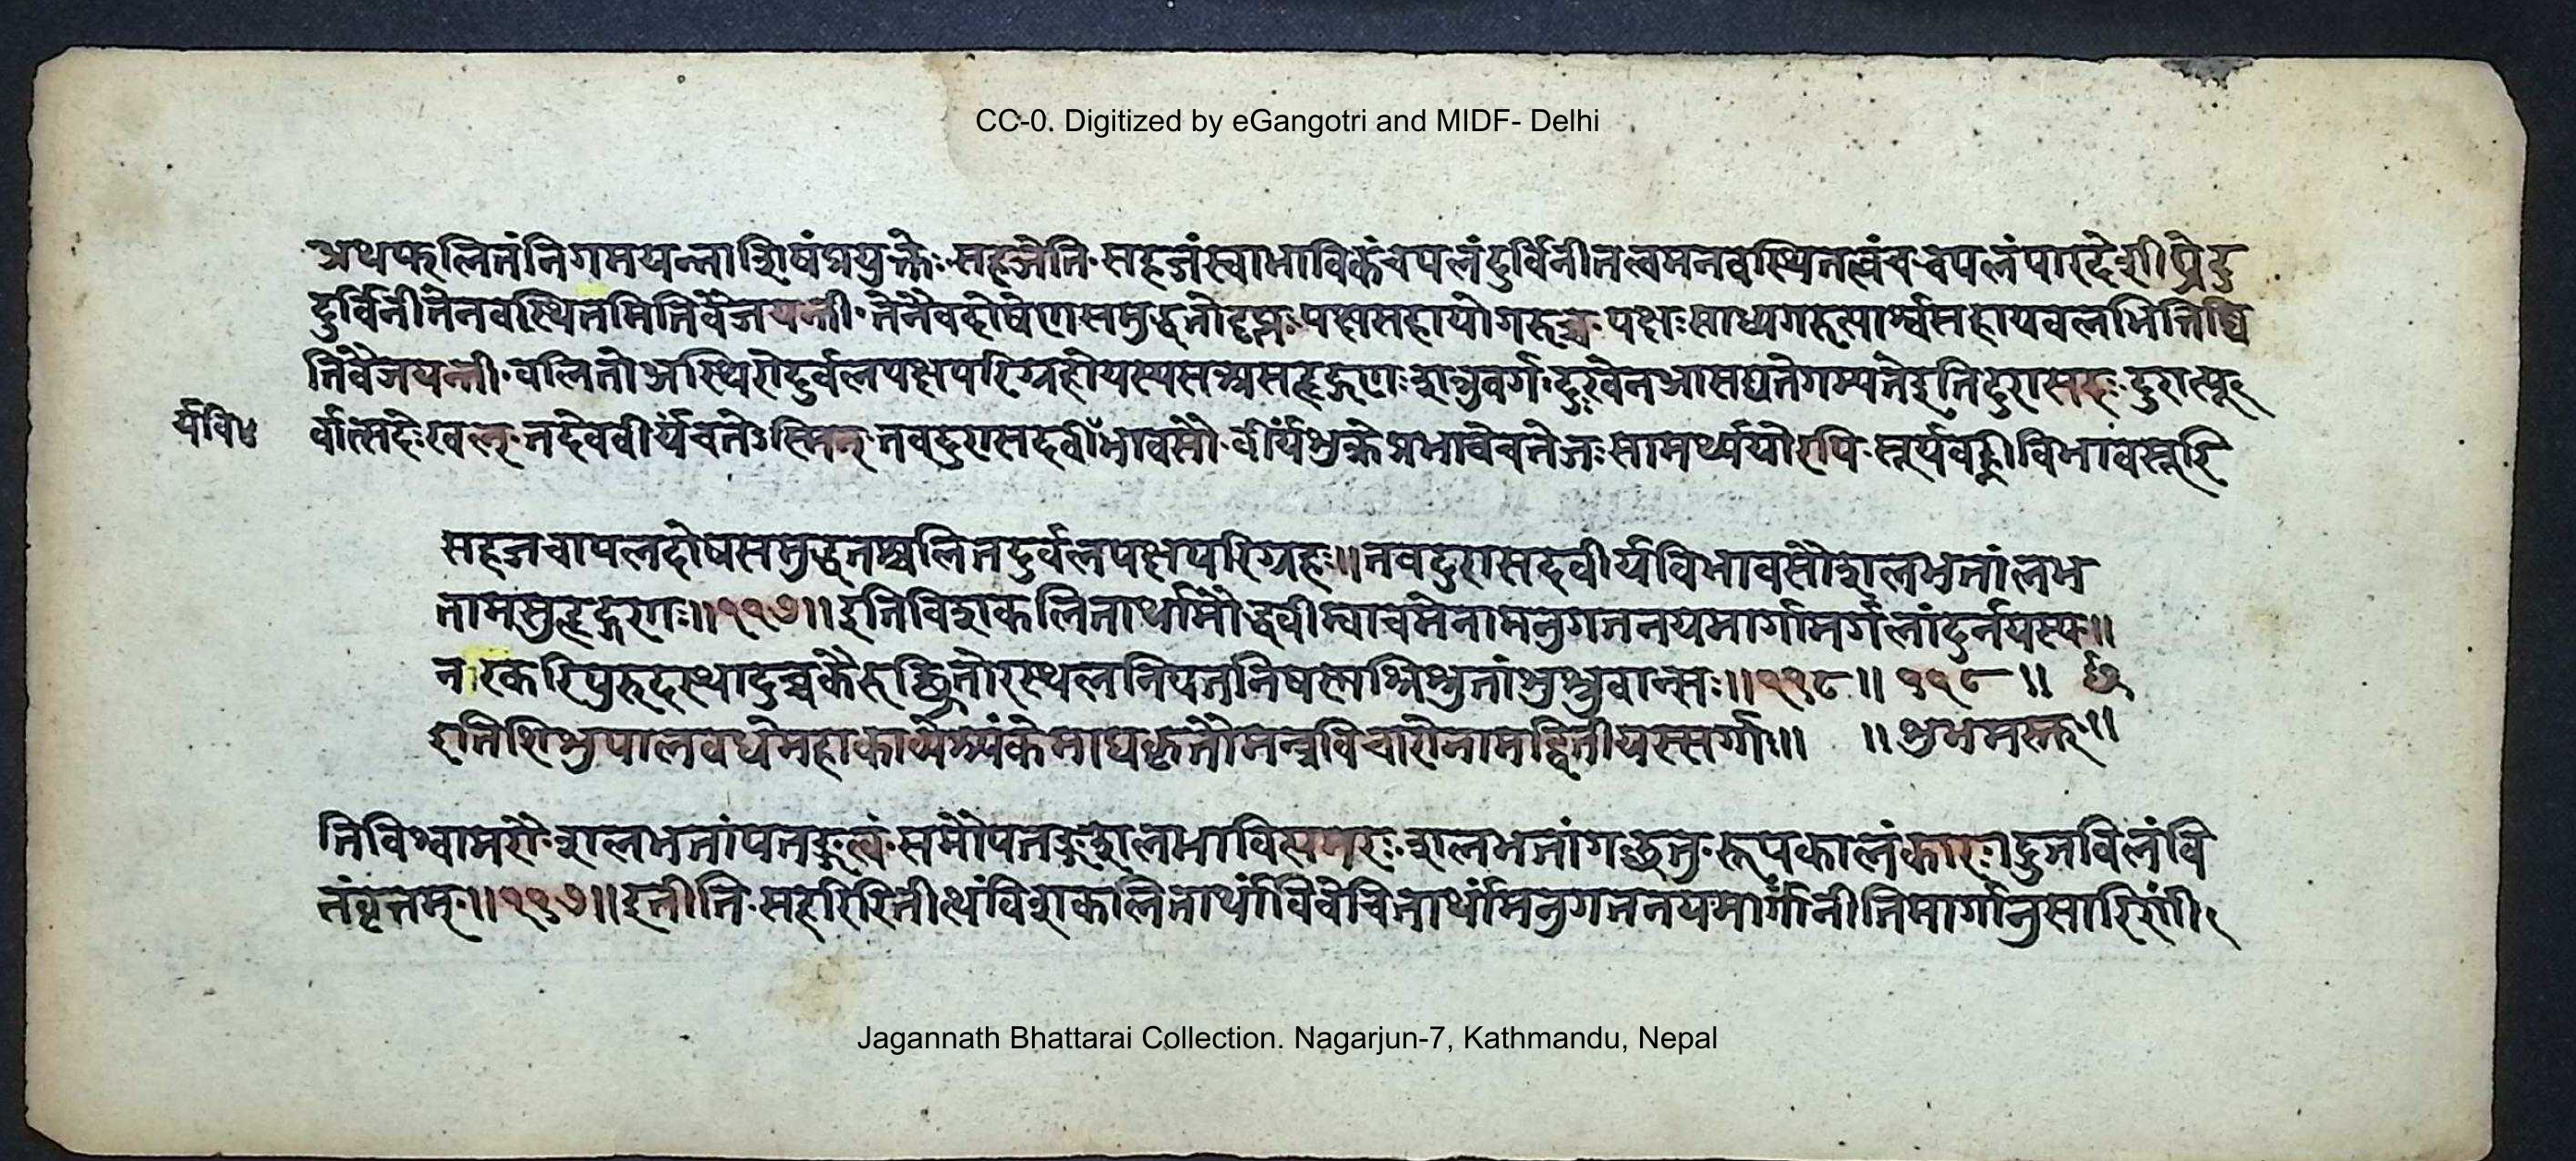 CC-0. Digitized by eGangotri and MIDF- Delhi
अथफलितंनिगमयन्नाशिषंप्रयुक्ते सहजेति सहजंस्वाभाविकंचपलंदुर्विनीतत्वमनवस्थितत्वंच चपलंपारदेशीघ्रेदु
दुर्विनीतेनवस्थितमितिवैजयन्ती तेनैवदोषेणसमुद्धतोदृप्तः पक्षसहायोगरुच्च पक्षःसाध्यगरुत्पार्श्वसहायबलभित्तिष्वि
तिवैजयन्ती चलितोअस्थिरोदुर्वलपक्षपरिग्रहोयस्यसअसत्दृद्गणःशत्रुवर्ग दुःखेनआसद्यतेगम्यतेइतिदुरासदः दुरात्पू
र्वात्सदेःखल् तदेववीर्यंचतेऽस्मिन् तवदुरासदवीभावसौ वीर्यंशुक्रेप्रभावेचतेजःसामर्थ्ययोरपि सूर्यवह्नीविभावसूरि
र्यवि४
सहजचापलदोषसमुद्धतश्चलितदुर्वलपक्षपरिग्रहः॥तवदुरासदवीर्यविभावसौशलभतांलभ
तामसुत्दृद्गणः॥११७॥इतिविशकलितार्थामौद्धवीम्वाचमेनामनुगतनयमार्गामर्गलांदुर्नयस्य॥
नरकरिपुरुदस्थादुच्चकैरुज्झितोरस्थलनियतनिषस्माश्रिश्रुतांशुश्रुवान्सः॥११८॥ ११८॥
इतिशिशुपालवधेमहाकाव्येश्र्यंकेमाघकृतौमन्त्रविचारोनामद्वितीयस्सर्गः॥ ॥शुभमस्तु॥
तिविश्वामरौ शलभतांपतङ्गत्वं समौपतङ्गशलभाविसमरः शलभतांगच्छतु रूपकालंकारः द्रुतविलंवि
तंवृत्तम्॥११७॥इतीति सहरिरितीत्थंविशकलितार्थांविवेचितार्थामनुगतनयमार्गांनीतिमार्गानुसारिणीं
Jagannath Bhattarai Collection. Nagarjun-7, Kathmandu, Nepal